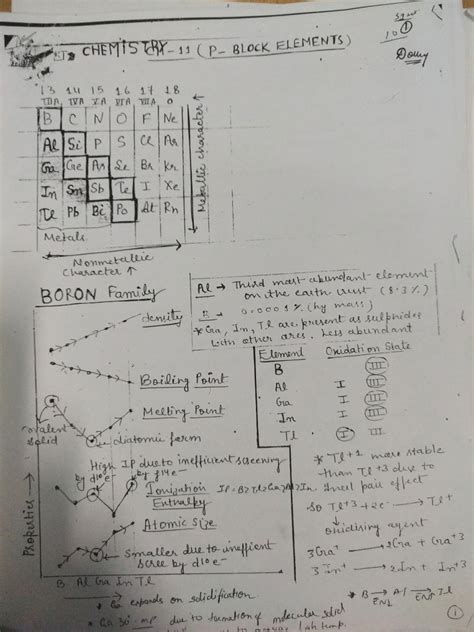 CHEMISTRY CH-11 (P-BLOCK ELEMENTS)
10 ①
13 14 15 16 17 18
IIIA IVA VA VIA VIIA 0
B C N O F Ne
Al Si P S Cl Ar
Ga Ge As Se Br Kr
In Sn Sb Te I Xe
Tl Pb Bi Po At Rn
Metallic character
Metals
Nonmetallic
Character ↑
BORON Family
Al → Third most abundant element
on the earth crust (8.3%)
B → 0.0001% (by mass)
* Ga, In, Tl are present as sulphides
with other ores, less abundant
density
Boiling Point
Melting Point
Covalent
solid
diatomic form
High IP due to inefficient screening
by d10 e- by f14 e-
Ionization IP = B > Tl > Ga > Al > In
Enthalpy
Atomic Size
Smaller due to inefficient
scree by d10 e-
Properties →
B Al Ga In Tl
Element Oxidation State
B III
Al I III
Ga I III
In I III
Tl I III
* Tl+1 more stable
than Tl+3 due to
Inert pair effect
So Tl+3 + 2e- → Tl+
oxidising agent
3Ga+ → 2Ga + Ga+3
3In+ → 2In + In+3
* B → Al → Tl
EN↓ EN↑
* Ga expands on solidification
* Ga 30° mp due to formation of molecular solid
①